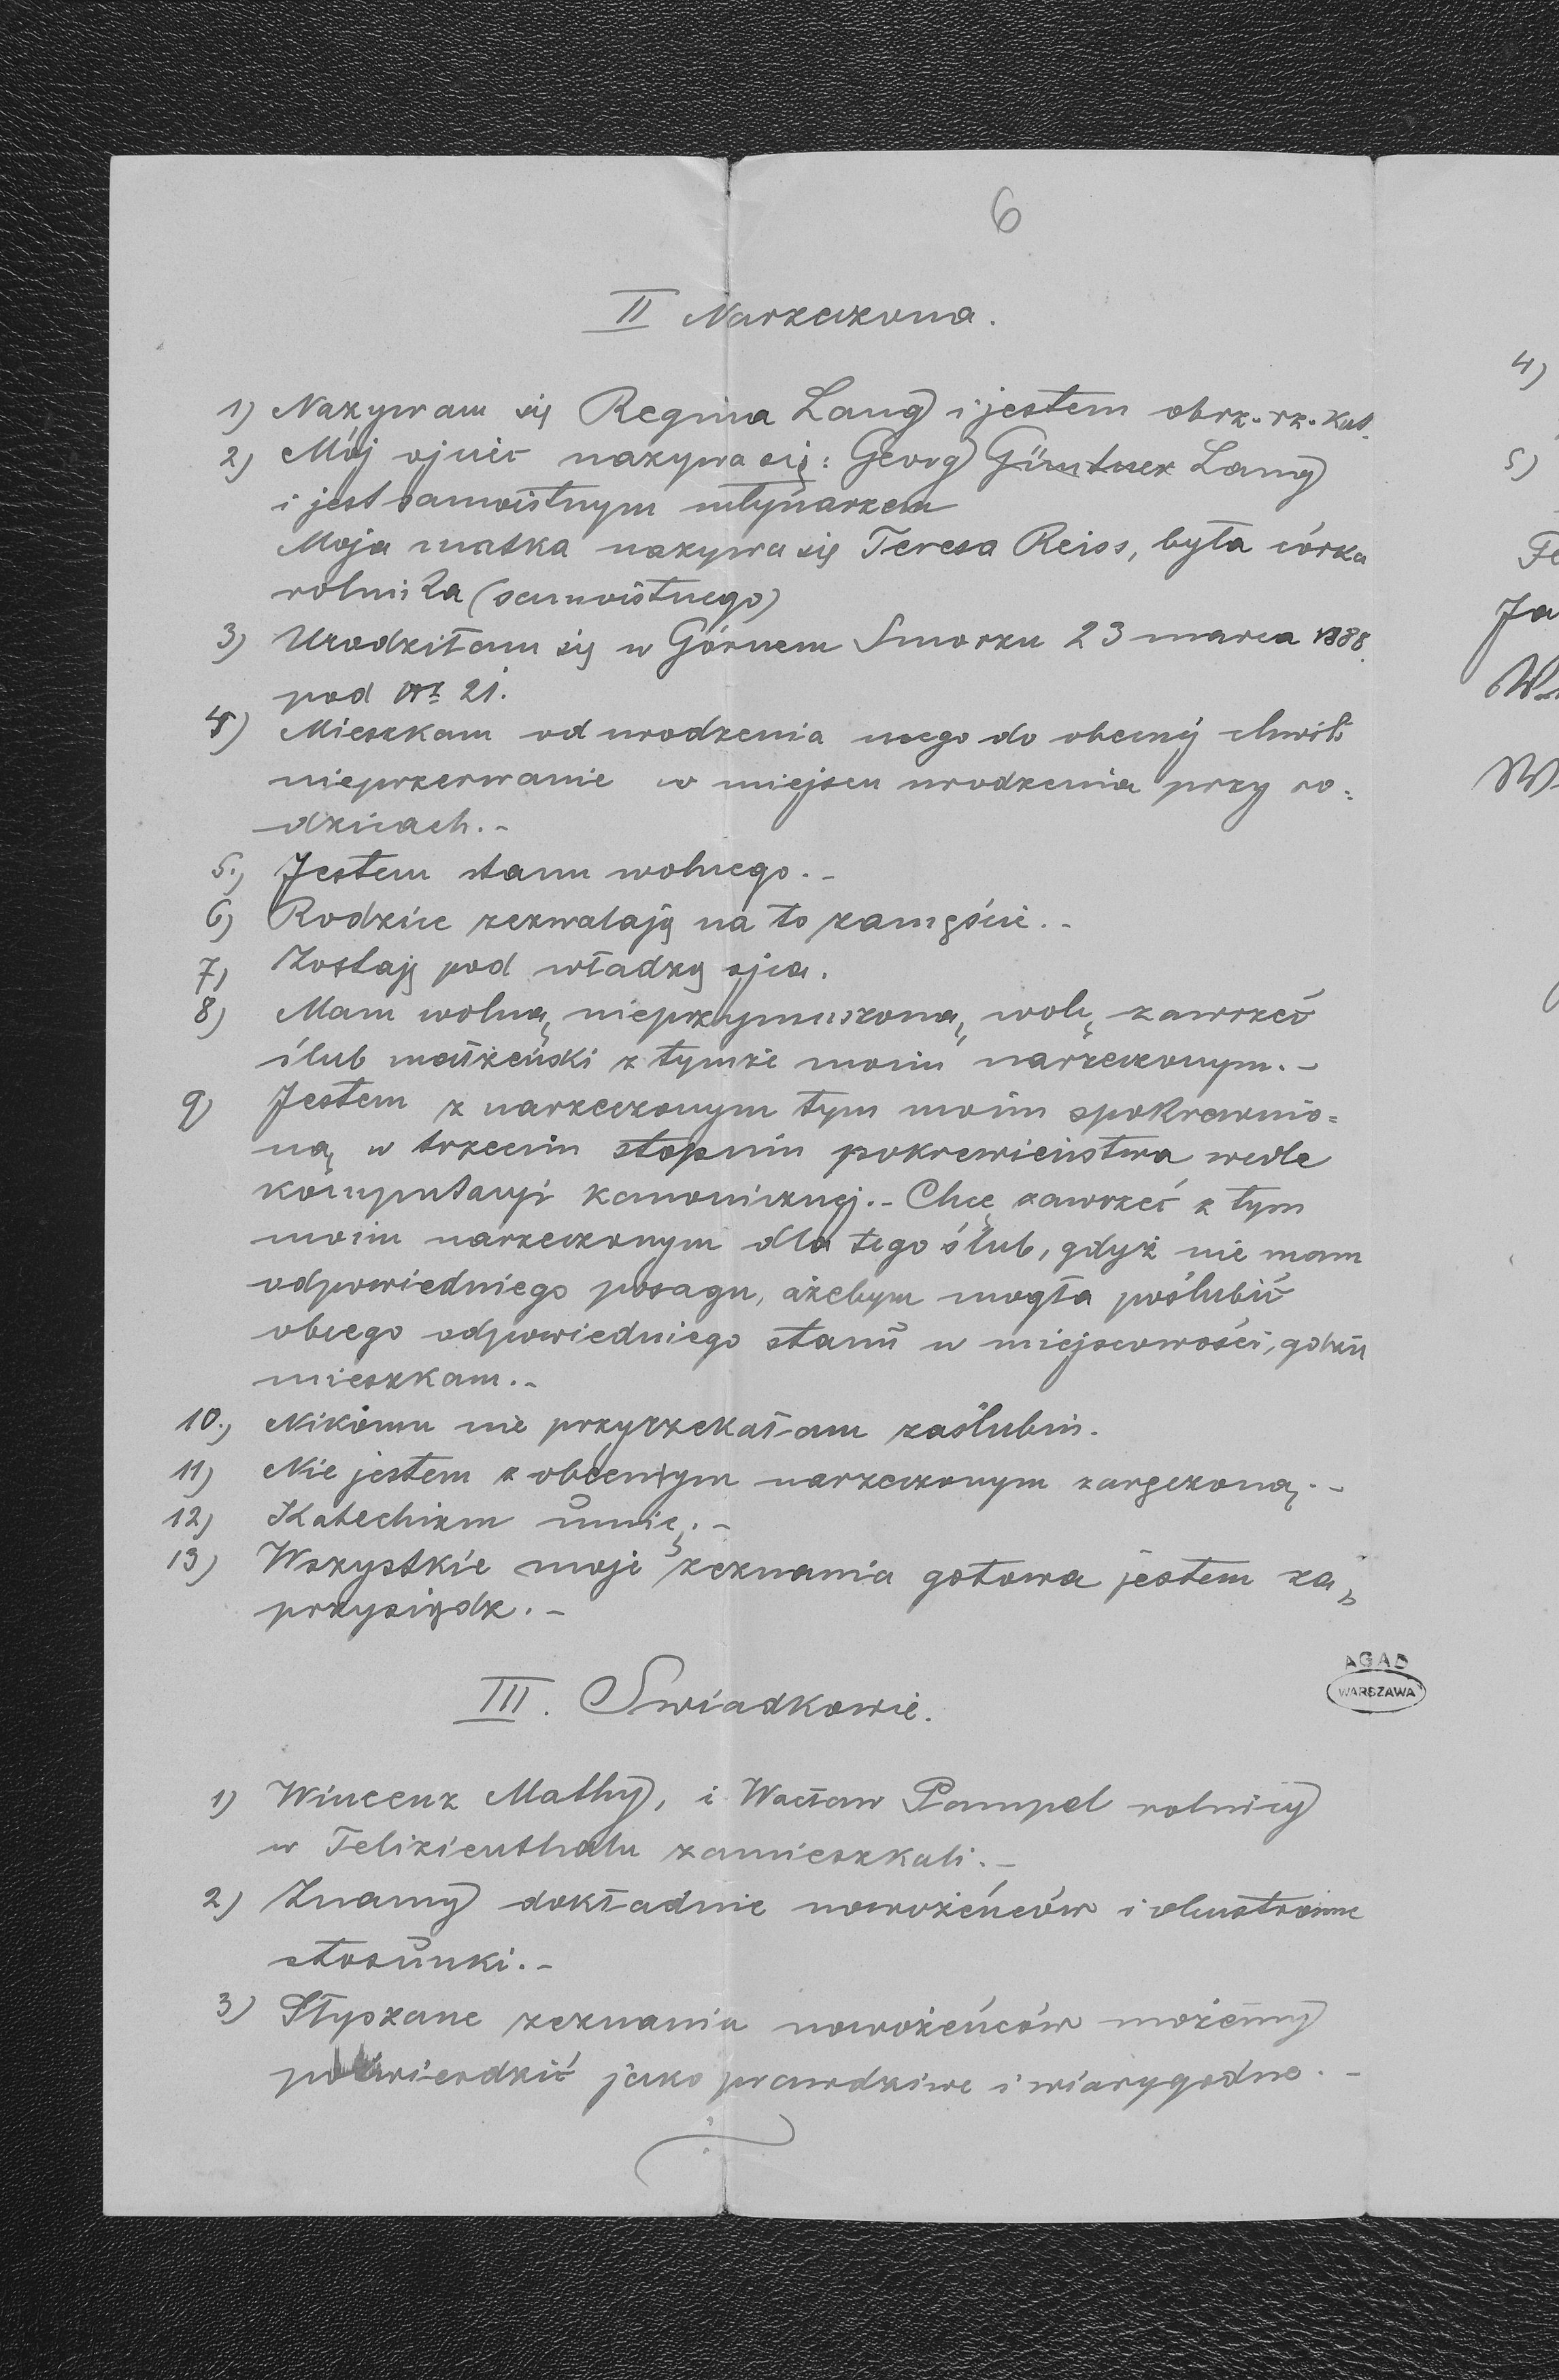 6
II Narzeczona.
1) Nazywam się Regina Lang i jestem obrz. rz. kat.
2) Mój ojciec nazywa się: Georg Güntner Lang
i jest samoistnym młynarzem
Moja matka nazywa się Teresa Reiss, była córka
rolnika (samoistnego)
3) Urodziłam się w Górnem Smorzu 23 marca 1888
pod Nr 21.
4) Mieszkam od urodzenia mego do obecnéj chwili
nieprzerwanie w miejscu urodzenia przy ro:
dzicach. -
5.) Jestem stanu wolnego. -
6) Rodzice zezwalają na to zamęście. -
7) Zostaję pod władzą ojca.
8) Mam wolną, nieprzymuszoną, wolę zawrzeć
ślub małżeński z tymże moim narzeczonym. -
9) Jestem z narzeczonym tym moim spokrewnio=
ną w trzecim stopniu pokrewieństwa wedle
komputacyi kanonicznej. - Chcę zawrzeć z tym
moim narzeczonym dla tego ślub, gdyż nie mam
odpowiedniego posagu, ażebym mogła poślubić
obcego odpowiedniego stanu w miejscowości, gdzie
mieszkam. -
10.) Nikomu nie przyrzekałam zaślubin.
11) Nie jestem z obecnym narzeczonym zaręczoną. -
12) Katechizm umię. -
13) Wszystkie moje zeznania gotowa jestem za=
przysiądz. -
III. Swiadkowie.
1) Wincenz Mathy, i Wacław Pampel rolnicy
w Felizienthalu zamieszkali. -
2) Znamy dokładnie nowożeńców i obustronne
stosunki. -
3) Słyszane zeznania nowożeńców możemy
potwierdzić jako prawdziwe i wiarygodne. -
AGAD
WARSZAWA
4)
5)
Fe
Ja
W